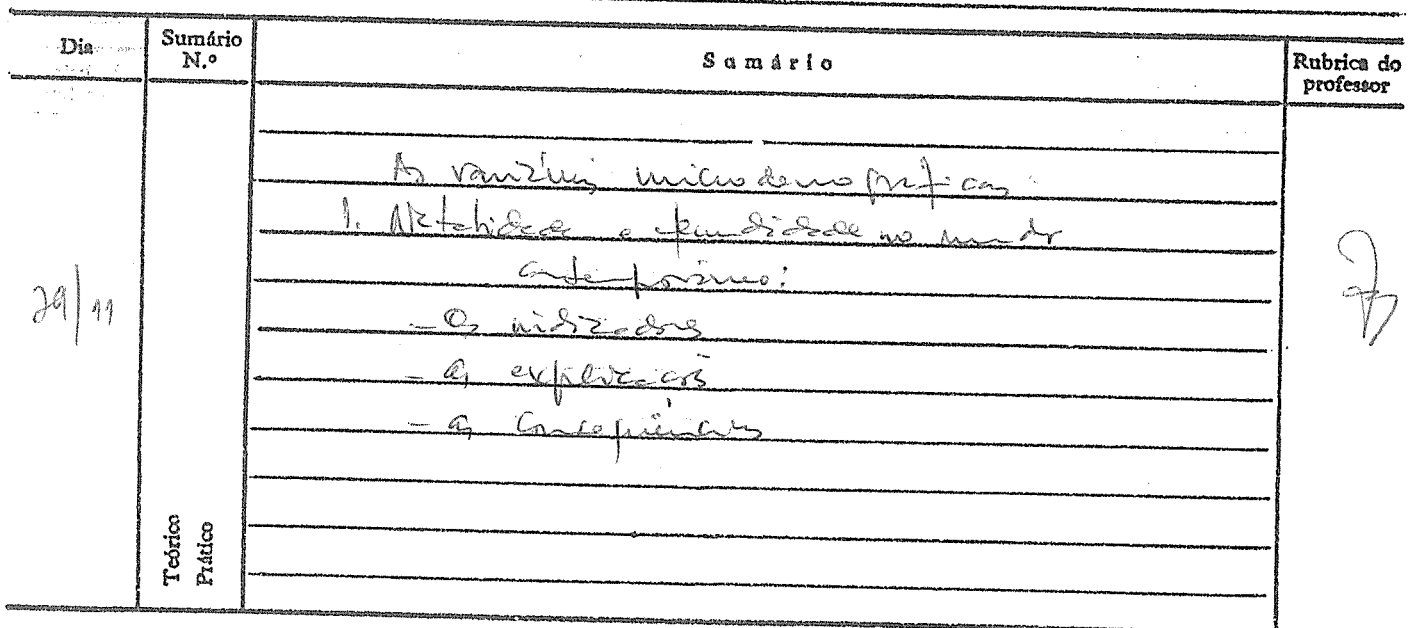 Dia
Sumário
N.º
Sumário
Rubrica do
professor
As variáveis microdemográficas:
1. Natalidade e fecundidade no mundo
contemporâneo:
29/11
- Os indicadores
- as explicações
- as consequências
Teórico
Prático